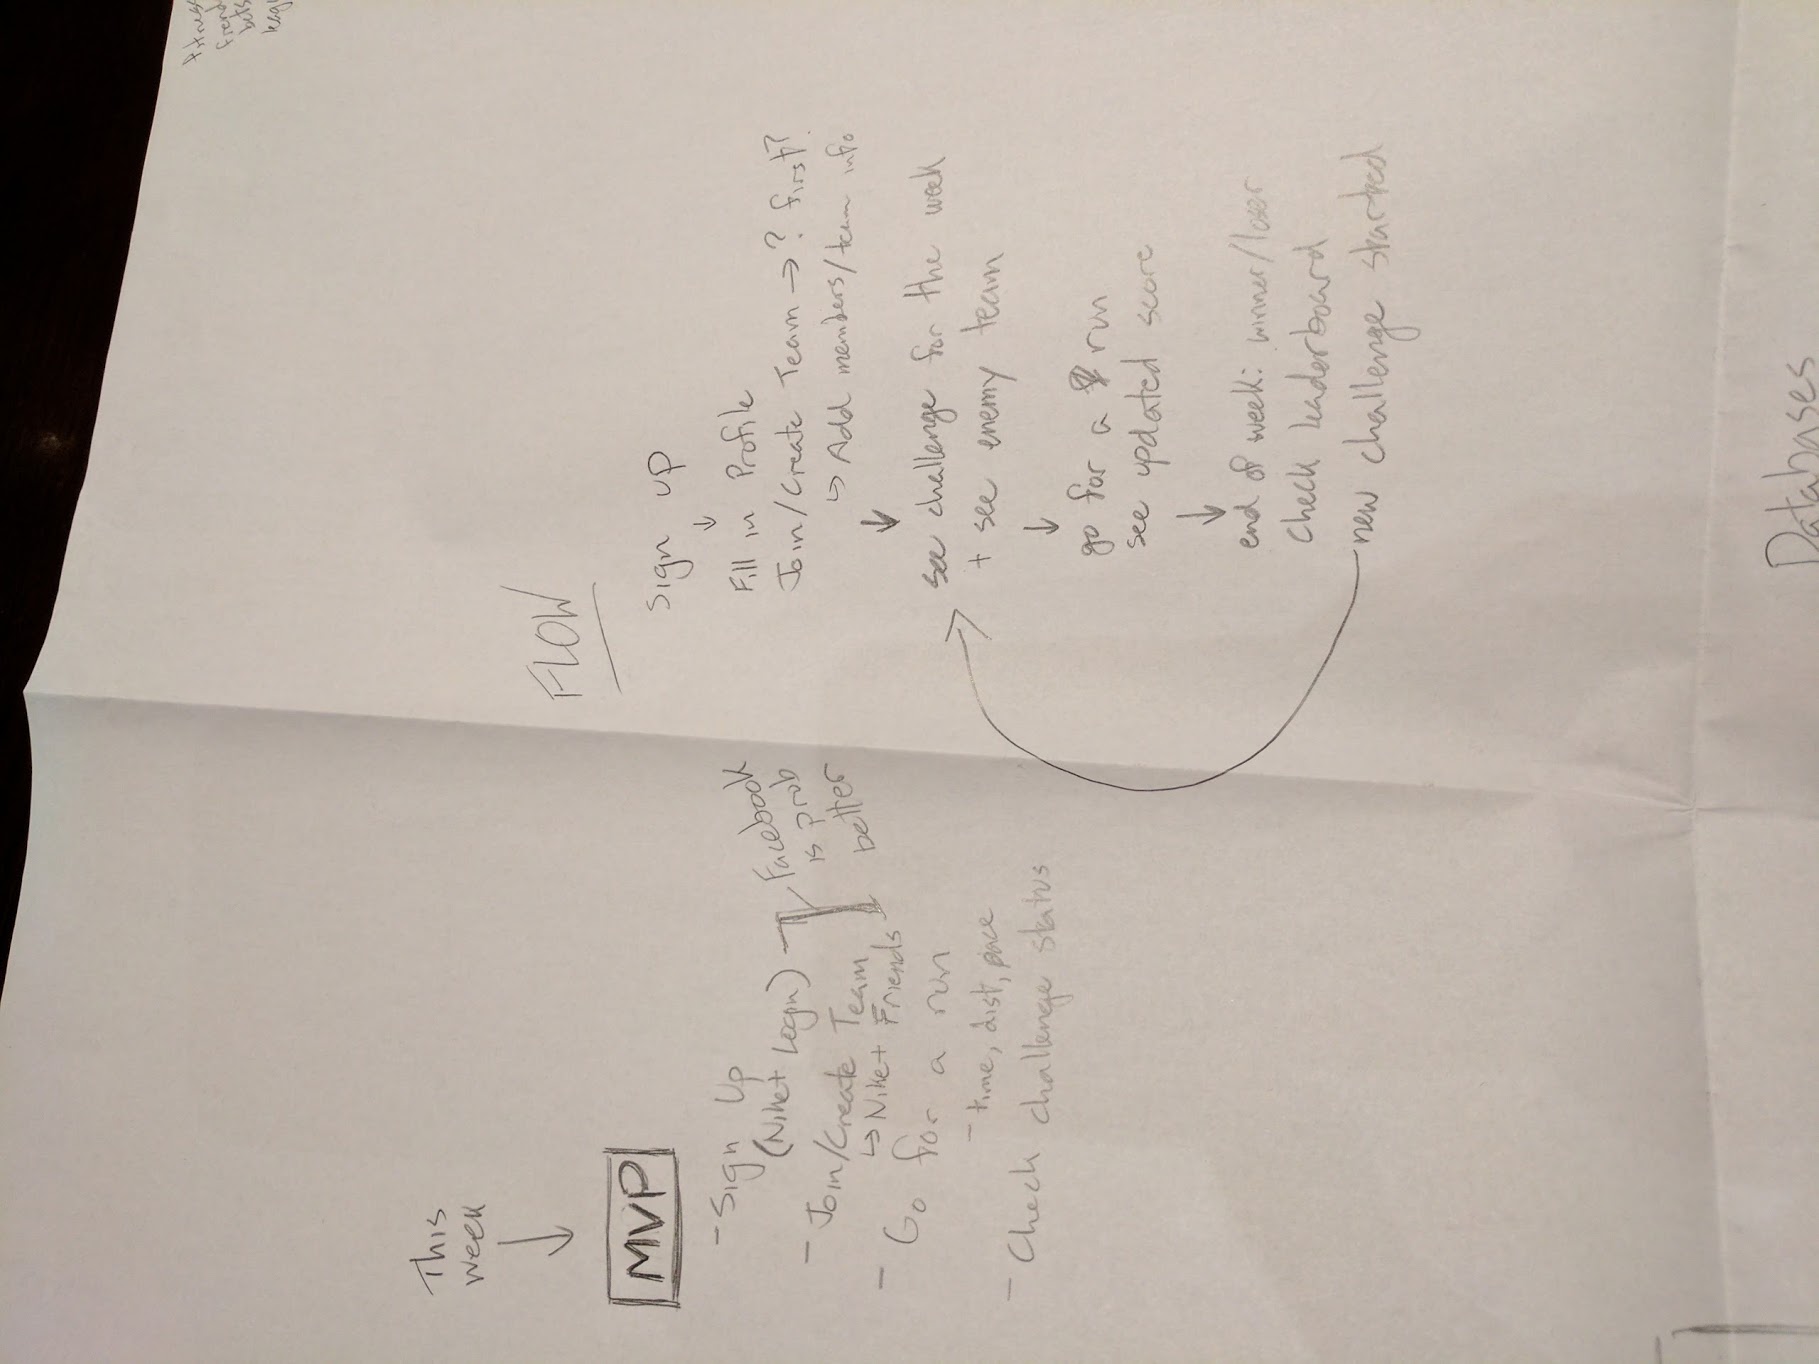 This
week
↓
MVP
- Sign Up
(Nike+ Login)
- Join/Create Team
↳ Nike+ Friends
Facebook
is prob
better
- Go for a run
- time, dist, pace
- Check challenge status
FLOW
Sign up
↓
Fill in Profile
Join/Create Team → ? first?
↳ Add members/team info
↓
see challenge for the week
+ see enemy team
↓
go for a run
see updated score
↓
end of week: winner/loser
check leaderboard
new challenge started
Databases